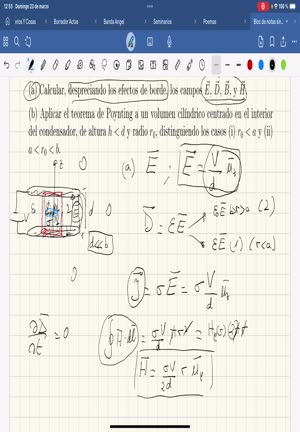 12:55 Domingo 22 de marzo
100 %
Varios Y Cosas Borrador Actas Banda Angel Seminarios Poemas Bloc de notas sin...
(a) Calcular, despreciando los efectos de borde, los campos E⃗, D⃗, B⃗, y H⃗.
(b) Aplicar el teorema de Poynting a un volumen cilíndrico centrado en el interior
del condensador, de altura h < d y radio r₀, distinguiendo los casos (i) r₀ < a y (ii)
a < r₀ < b.
(a) E⃗ ; E⃗ = V/d u⃗z
D⃗ = εE⃗
(2)
εE⃗ (1) (r<a)
d<<b
J⃗ = σE⃗ = σ V/d u⃗z
∂D⃗/∂t = 0
∮ H⃗·dl⃗ = σV/d
H⃗ = σV/2d r u⃗φ